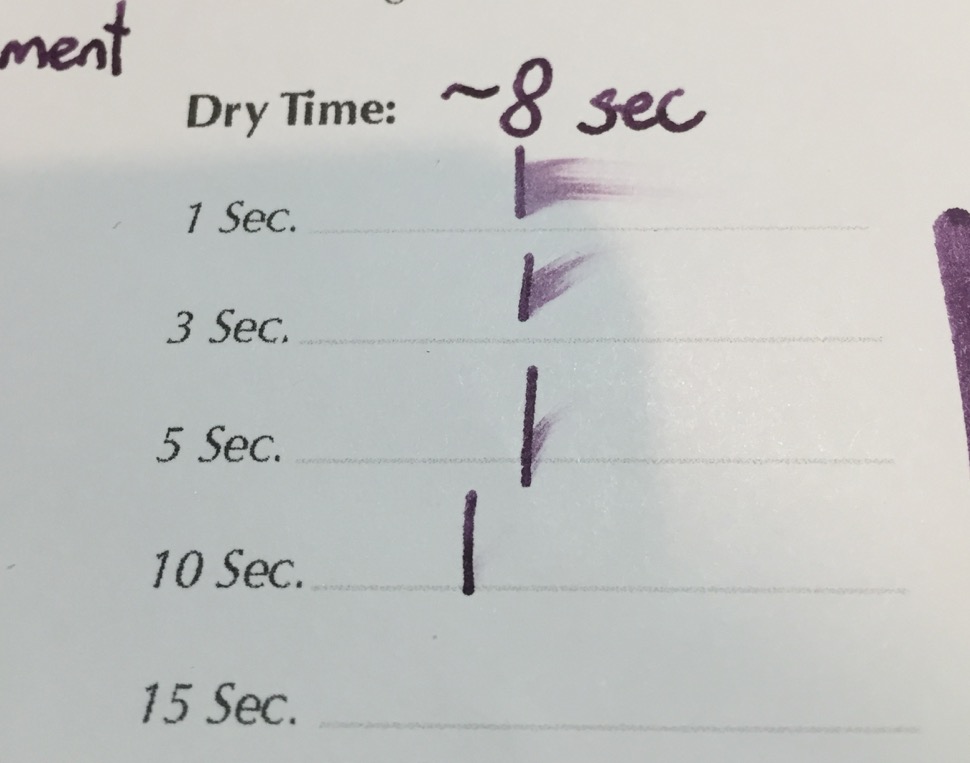 ment
Dry Time: ~8 sec
1 Sec.
3 Sec.
5 Sec.
10 Sec.
15 Sec.